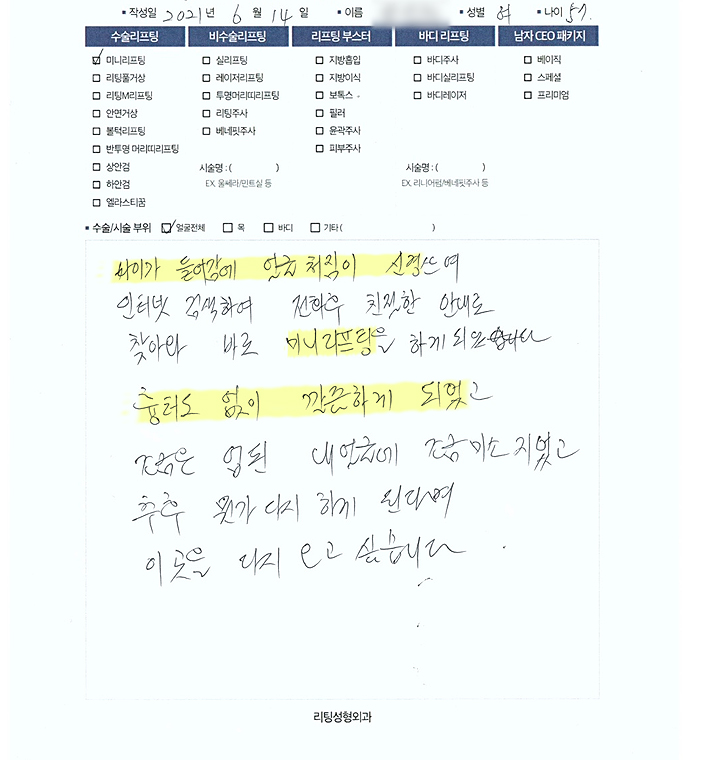 ▪ 작성일 2021년 6월 14일 ▪ 이름 ▪ 성별 여 ▪ 나이 57.
수술리프팅 비수술리프팅 리프팅 부스터 바디 리프팅 남자 CEO 패키지
☑ 미니리프팅 ☐ 실리프팅 ☐ 지방흡입 ☐ 바디주사 ☐ 베이직
☐ 리팅풀거상 ☐ 레이저리프팅 ☐ 지방이식 ☐ 바디실리프팅 ☐ 스페셜
☐ 리팅M리프팅 ☐ 투명머리띠리프팅 ☐ 보톡스 ☐ 바디레이저 ☐ 프리미엄
☐ 안면거상 ☐ 리팅주사 ☐ 필러
☐ 볼턱리프팅 ☐ 베네핏주사 ☐ 윤곽주사
☐ 반투영 머리띠리프팅 ☐ 피부주사
☐ 상안검 시술명 : ( ) 시술명 : ( )
☐ 하안검 EX. 울쎄라/민트실 등 EX. 리니어펌/베네핏주사 등
☐ 엘라스티꿈
▪ 수술/시술 부위 ☑ 얼굴전체 ☐ 목 ☐ 바디 ☐ 기타 ( )
나이가 들어감에 얼굴 처짐이 신경쓰여
인터넷 검색하여 전화후 친절한 안내로
찾아와 바로 미니리프팅을 하게 되었습니다
흉터도 없이 깔끔하게 되었고
조금은 업된 내얼굴에 조금 미소 지었고
추후 뭔가 다시 하게 된다면
이곳을 다시 오고 싶습니다.
리팅성형외과